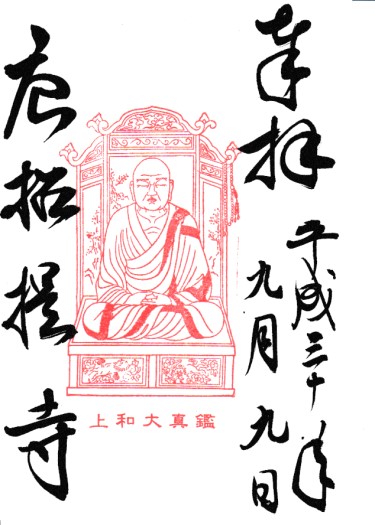 奉拝
平成三十年
九月九日
唐招提寺
鑑真大和上